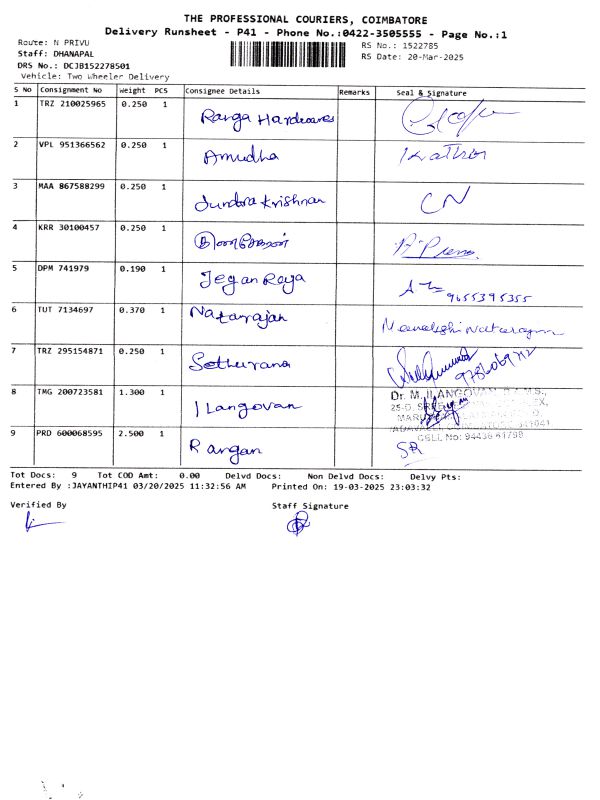 THE PROFESSIONAL COURIERS, COIMBATORE
Delivery Runsheet - P41 - Phone No.:0422-3505555 - Page No.:1
Route: N PRIVU
RS No.: 1522785
Staff: DHANAPAL
RS Date: 20-Mar-2025
DRS No.: DCJB152278501
Vehicle: Two Wheeler Delivery
S No Consignment No Weight PCS Consignee Details Remarks Seal & Signature
1 TRZ 210025965 0.250 1 Ranga Hardwares
2 VPL 951366562 0.250 1 Amudha
3 MAA 867588299 0.250 1 Sundara Krishnan CN
4 KRR 30100457 0.250 1
5 DPM 741979 0.190 1 Jegan Raja 9655395355
6 TUT 7134697 0.370 1 Natarajan Meenakshi Natarajan
7 TRZ 295154871 0.250 1
8 TMG 200723581 1.300 1 Ilangovan Dr. M. ILANGOVAN
CELL No: 94436 61798
9 PRD 600068595 2.500 1 Rangan SR
Tot Docs: 9 Tot COD Amt: 0.00 Delvd Docs: Non Delvd Docs: Delvy Pts:
Entered By :JAYANTHIP41 03/20/2025 11:32:56 AM Printed On: 19-03-2025 23:03:32
Verified By Staff Signature